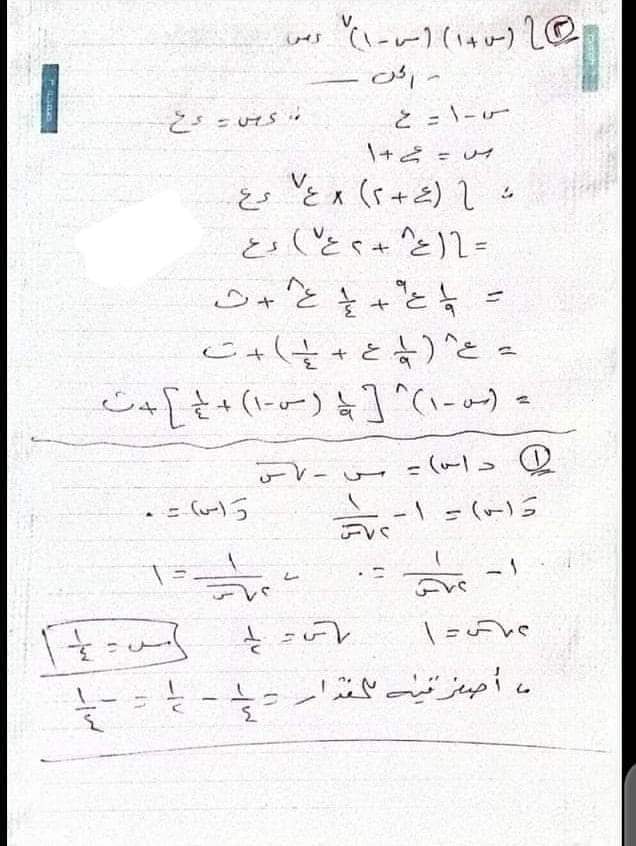 ٣ ∫ (س+١) (س-١)^٧ ءس
الحل
س-١ = ع ∴ ءس = ءع
س = ع+١
∴ ∫ (ع+٢) × ع^٧ ءع
= ∫ (ع^٨ + ٢ع^٧) ءع
= ١/٩ ع^٩ + ١/٤ ع^٨ + ث
= ع^٨ (١/٩ ع + ١/٤) + ث
= (س-١)^٨ [١/٩ (س-١) + ١/٤] + ث
١ د(س) = س - √س
دَ(س) = ١ - ١/٢√س دَ(س) = ٠
١ - ١/٢√س = ٠ ، ١/٢√س = ١
٢√س = ١ √س = ١/٢ س = ١/٤
∴ أصغر قيمة للمقدار = ١/٤ - ١/٢ = -١/٤